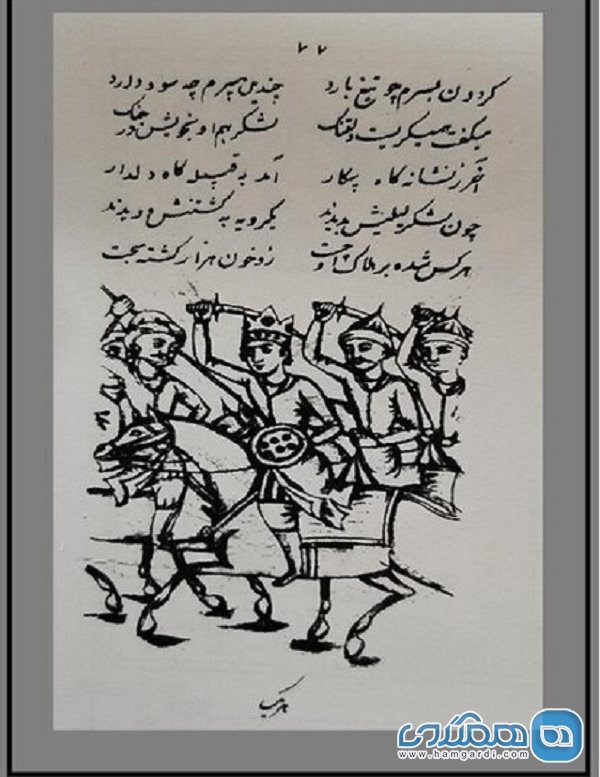 ۷۷
کردون بسرم چو تیغ بارد چندین سپرم چه سود دارد
میکفت همیکریست دلتنک لشکر هم او بخویش در جنک
آخر ز نشانه کاه پیکار آمد به قبیله کاه دلدار
چون لشکر لیلیش بدیدند یکرویه به کشتنش دویدند
هر کس شده بر هلاک او جست زو خون هزار کشته میجست
همگردی
www.hamgardi.com